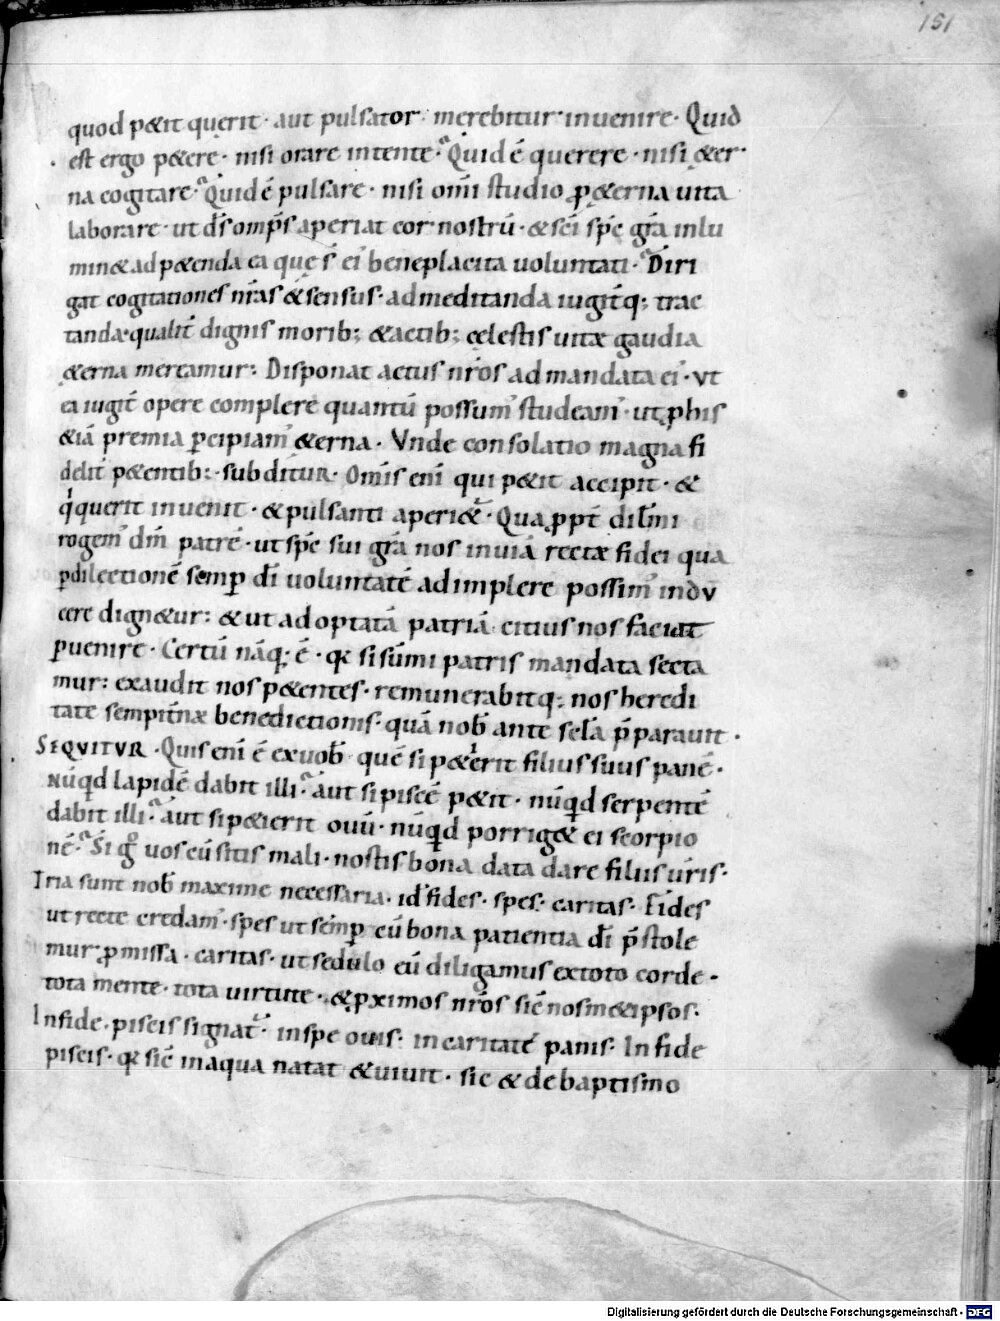 151
quod p&it querit · aut pulsator · merebitur inuenire · Quid
est ergo p&ere · nisi orare intente · Quid ē querere · nisi &er
na cogitare · Quid ē pulsare · nisi omī studio ꝓ &erna uita
laborare · ut ds̄ omps̄ aperiat cor nostrū · & sc̄i sp̄c gr̄a inlu
min& ad p&enda ea que s̄ ei' beneplacita uoluntati · Diri
gat cogitationes nr̄as & sensus · ad meditanda iugit̄q; trac
tanda · qualit̄ dignis morib; & actib; cęlestis uitæ gaudia
&erna mereamur : Disponat actus nr̄os ad mandata ei' · vt
ea iugit̄ opere complere quantū possum' studeam' · ut ꝓ his
&iā premia ꝑcipiam' &erna · Vnde consolatio magna fi
delit̄ p&entib: · subditur · Om̄is eni qui p&it accipit · &
qui querit inuenit · & pulsanti aperi& · Qua ꝓpt̄ dil̄mi
rogem' dm̄ patrē · ut sp̄c sui gr̄a nos in uiā rectæ fidei qua
ꝑ dilectionē semꝑ dī uoluntatē adimplere possim' indv
cere dign&ur : & ut ad optatā patriā citius nos faciat
ꝑuenire · Certū nāq; ē · qr si sūmi patris mandata secta
mur : exaudit nos p&entes · remunerabitq; nos heredi
tate sempit̄næ benedictionis · quā nob̄ ante scl̄a p̄parauit ·
SEQVITVR · Quis eni ē ex uob̄ quē si p&ierit filius suus panē ·
nūqd lapidē dabit illi · aut si piscē p&it · nūqd serpentē
dabit illi · aut si p&ierit ouū · nūqd porrig& ei scorpio
nē · Si g° uos cū sitis mali · nostis bona data dare filiis ur̄is ·
Tria sunt nob̄ maxime necessaria · id ē fides · spes · caritas · Fides
ut recte credam' · spes ut semꝑ cū bona patientia dī p̄stole
mur ꝓmissa · caritas · ut sedulo eū diligamus ex toto corde ·
tota mente · tota uirtute · & ꝓximos nr̄os sic nosm&ipsos ·
In fide · piscis signat' · in spe ouis · in caritate panis · In fide
piscis · qr sic in aqua natat & uiuit · sic & de baptismo
Digitalisierung gefördert durch die Deutsche Forschungsgemeinschaft - DFG